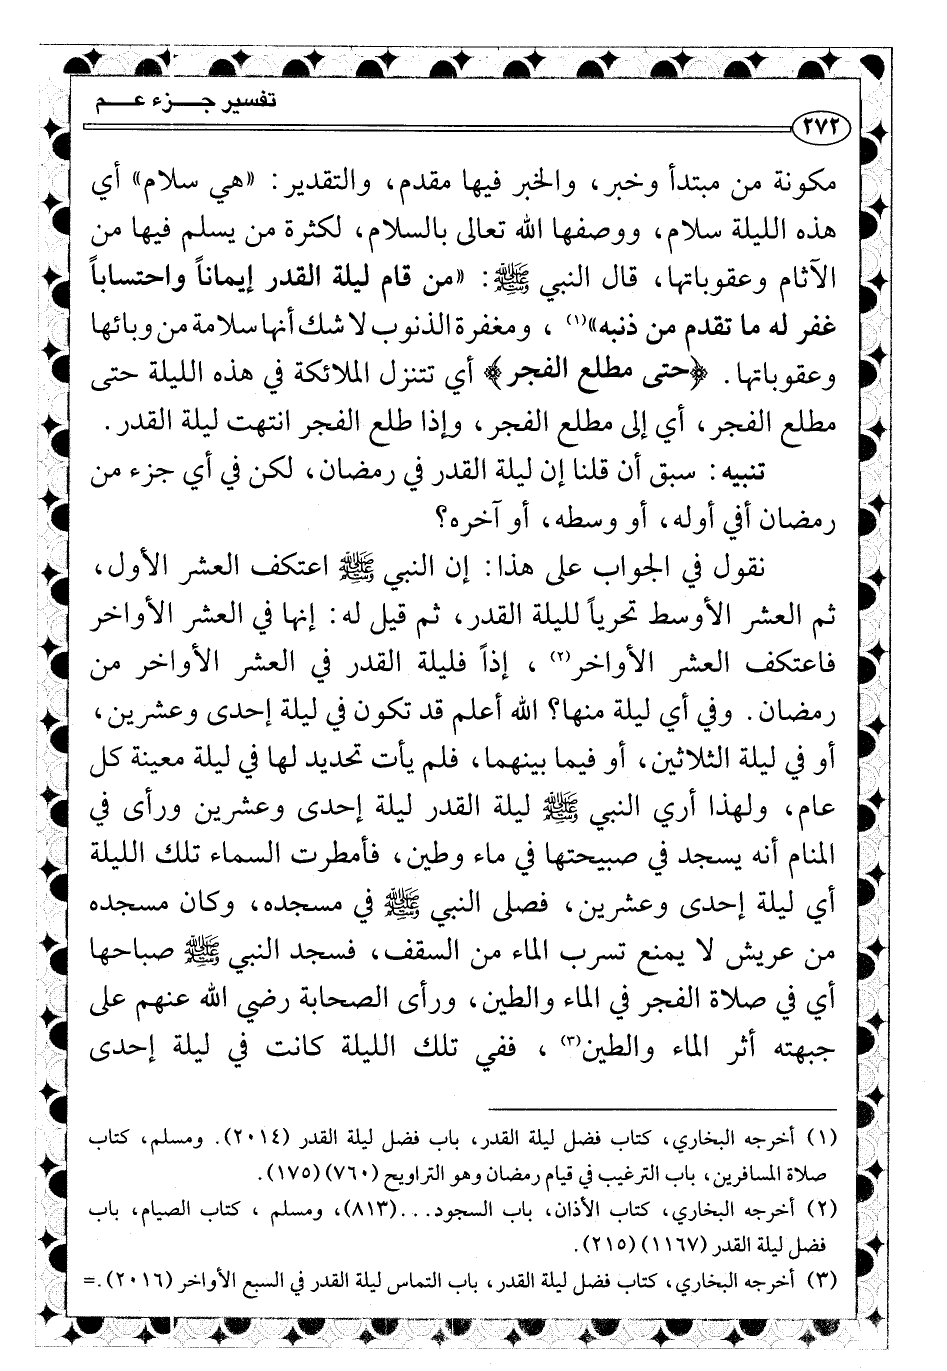 تفسير جزء عم
٢٧٢
مكونة من مبتدأ وخبر، والخبر فيها مقدم، والتقدير: «هي سلام» أي
هذه الليلة سلام، ووصفها الله تعالى بالسلام، لكثرة من يسلم فيها من
الآثام وعقوباتها، قال النبي ﷺ: «من قام ليلة القدر إيماناً واحتساباً
غفر له ما تقدم من ذنبه»(١)، ومغفرة الذنوب لا شك أنها سلامة من وبائها
وعقوباتها. ﴿حتى مطلع الفجر﴾ أي تتنزل الملائكة في هذه الليلة حتى
مطلع الفجر، أي إلى مطلع الفجر، وإذا طلع الفجر انتهت ليلة القدر.
تنبيه: سبق أن قلنا إن ليلة القدر في رمضان، لكن في أي جزء من
رمضان أفي أوله، أو وسطه، أو آخره؟
نقول في الجواب على هذا: إن النبي ﷺ اعتكف العشر الأول،
ثم العشر الأوسط تحرياً لليلة القدر، ثم قيل له: إنها في العشر الأواخر
فاعتكف العشر الأواخر(٢)، إذاً فليلة القدر في العشر الأواخر من
رمضان. وفي أي ليلة منها؟ الله أعلم قد تكون في ليلة إحدى وعشرين،
أو في ليلة الثلاثين، أو فيما بينهما، فلم يأت تحديد لها في ليلة معينة كل
عام، ولهذا أري النبي ﷺ ليلة القدر ليلة إحدى وعشرين ورأى في
المنام أنه يسجد في صبيحتها في ماء وطين، فأمطرت السماء تلك الليلة
أي ليلة إحدى وعشرين، فصلى النبي ﷺ في مسجده، وكان مسجده
من عريش لا يمنع تسرب الماء من السقف، فسجد النبي ﷺ صباحها
أي في صلاة الفجر في الماء والطين، ورأى الصحابة رضي الله عنهم على
جبهته أثر الماء والطين(٣)، ففي تلك الليلة كانت في ليلة إحدى
(١) أخرجه البخاري، كتاب فضل ليلة القدر، باب فضل ليلة القدر (٢٠١٤). ومسلم، كتاب
صلاة المسافرين، باب الترغيب في قيام رمضان وهو التراويح (٧٦٠) (١٧٥).
(٢) أخرجه البخاري، كتاب الأذان، باب السجود... (٨١٣)، ومسلم، كتاب الصيام، باب
فضل ليلة القدر (١١٦٧) (٢١٥).
(٣) أخرجه البخاري، كتاب فضل ليلة القدر، باب التماس ليلة القدر في السبع الأواخر (٢٠١٦).=